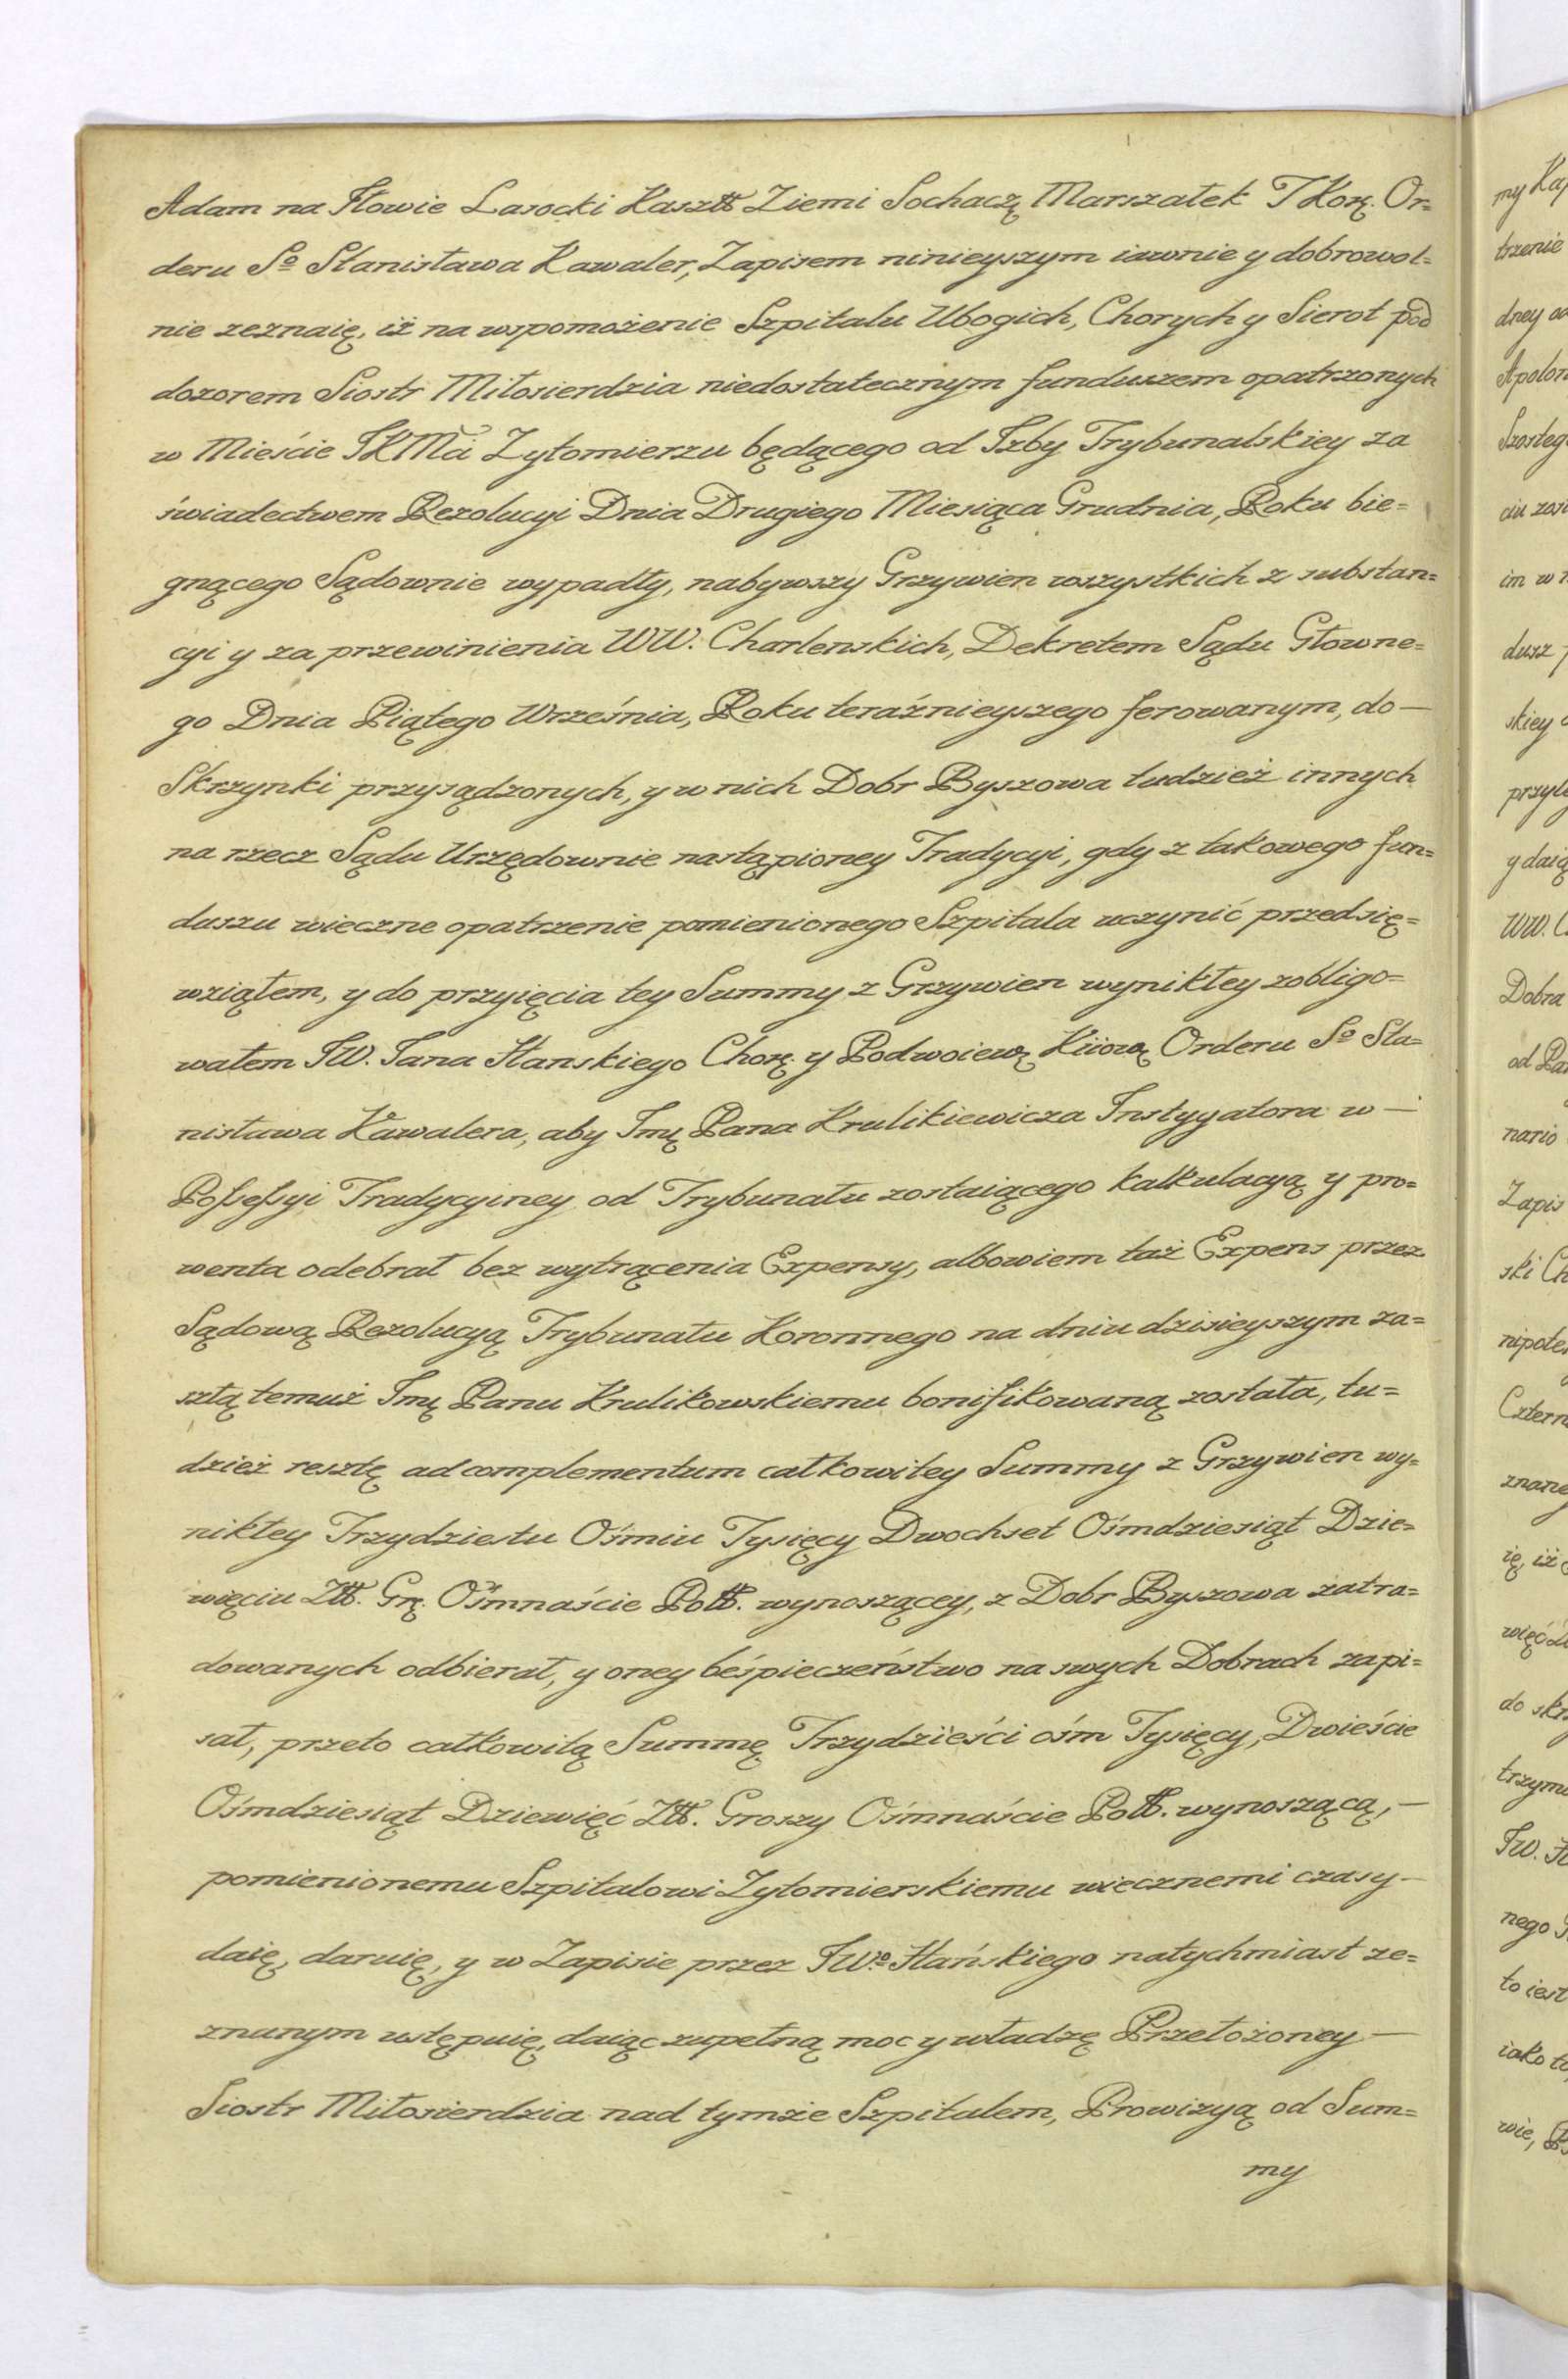 Adam na Iłowie Lasocki Kasztt Ziemi Sochaczę Marszałek T Korę. Or=
deru Sº Stanisława Kawaler, Zapisem ninieyszym iawnie y dobrowol=
nie zeznaię, iż na wspomożenie Szpitalu Ubogich, Chorych y Sierot pod
dozorem Siostr Miłosierdzia niedostatecznym funduszem opatrzonych
w Mieście JKMci Zytomierzu będącego od Izby Trybunalskiey za
świadectwem Rezolucyi Dnia Drugiego Miesiąca Grudnia, Roku bie=
gnącego Sądownie wypadły, nabywszy Grzywien wszystkich z substan=
cyi y za przewinienia WW. Charlenskich, Dekretem Sądu Głowne=
go Dnia Piątego Września, Roku teraźnieyszego ferowanym, do —
Skrzynki przysądzonych, y w nich Dobr Byszowa tudzież innych
na rzecz Sądu Urzędownie nastąpioney Tradycyi, gdy z takowego fun=
duszu wieczne opatrzenie pomienionego Szpitala uczynić przedsię=
wziąłem, y do przyięcia tey Summy z Grzywien wynikłey zobligo=
wałem JW. Jana Hanskiego Chorę. y Podwoiewę Kiiowę Orderu Sº Sta=
nisława Kawalera, aby Jmę Pana Krulikiewicza Instygatora w —
Possessyi Tradycyiney od Trybunału zostaiącego kalkulacyą y pro=
wenta odebrał bez wytrącenia Expensy, albowiem taż Expens przez
Sądową Rezolucyą Trybunału Koronnego na dniu dzisieyszym za=
szłą temuż Jmę Panu Krulikowskiemu bonifikowaną została, tu=
dzież resztę ad complementum całkowitey Summy z Grzywien wy=
nikłey Trzydziestu Ośmiu Tysięcy Dwochset Ośmdziesiąt Dzie=
więciu Ztt. Grę. Ośmnaście Poltt. wynoszącey, z Dobr Byszowa zatra=
dowanych odbierał, y oney beśpieczeństwo na swych Dobrach zapi=
sał, przeto całkowitą Summę Trzydzieści ośm Tysięcy, Dwieście
Ośmdziesiąt Dziewięć Ztt. Groszy Ośmnaście Poltt. wynoszącą, —
pomienionemu Szpitalowi Zytomierskiemu wiecznemi czasy —
daię, daruię, y w Zapisie przez JWº Hańskiego natychmiast ze=
znanym ustępuię, daiąc zupełną moc y władzę Przełożoney —
Siostr Miłosierdzia nad tymże Szpitalem, Prowizyą od Sum=
my